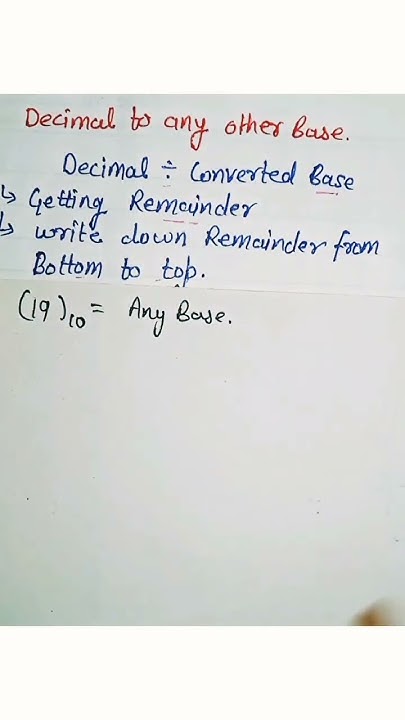 Decimal to any other Base.
Decimal ÷ Converted Base
↳ Getting Remainder
↳ write down Remainder from
Bottom to top.
(19)₁₀ = Any Base.